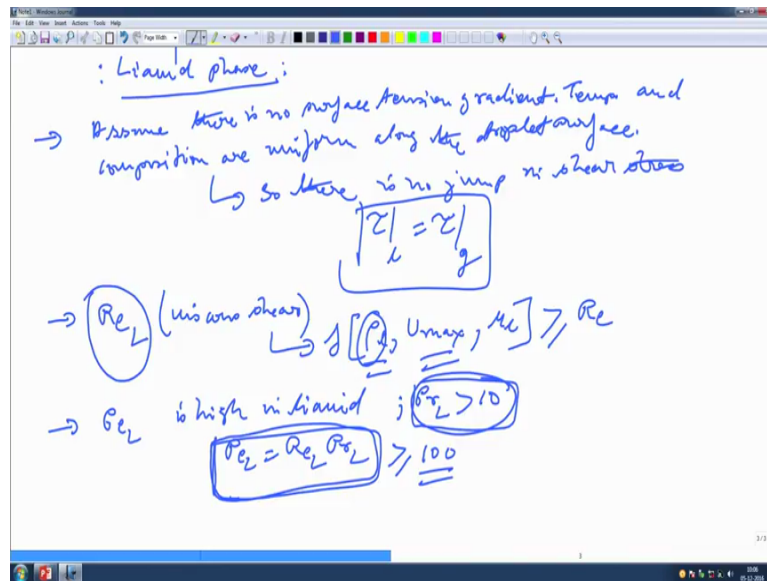 Note1 - Windows Journal
File Edit View Insert Actions Tools Help
Page Width
: Liquid phase :
→ Assume there is no surface tension gradient. Temp and
composition are uniform along the droplet surface.
↳ So there is no jump in shear stress
τ|l = τ|g
→ ReL (viscous shear) ↳ f[ρl, Umax, μl] ≥ Re
→ PeL is high in liquid ; PrL > 10
PeL = ReL PrL ≥ 100
3/3
3
10:06
05-12-2016